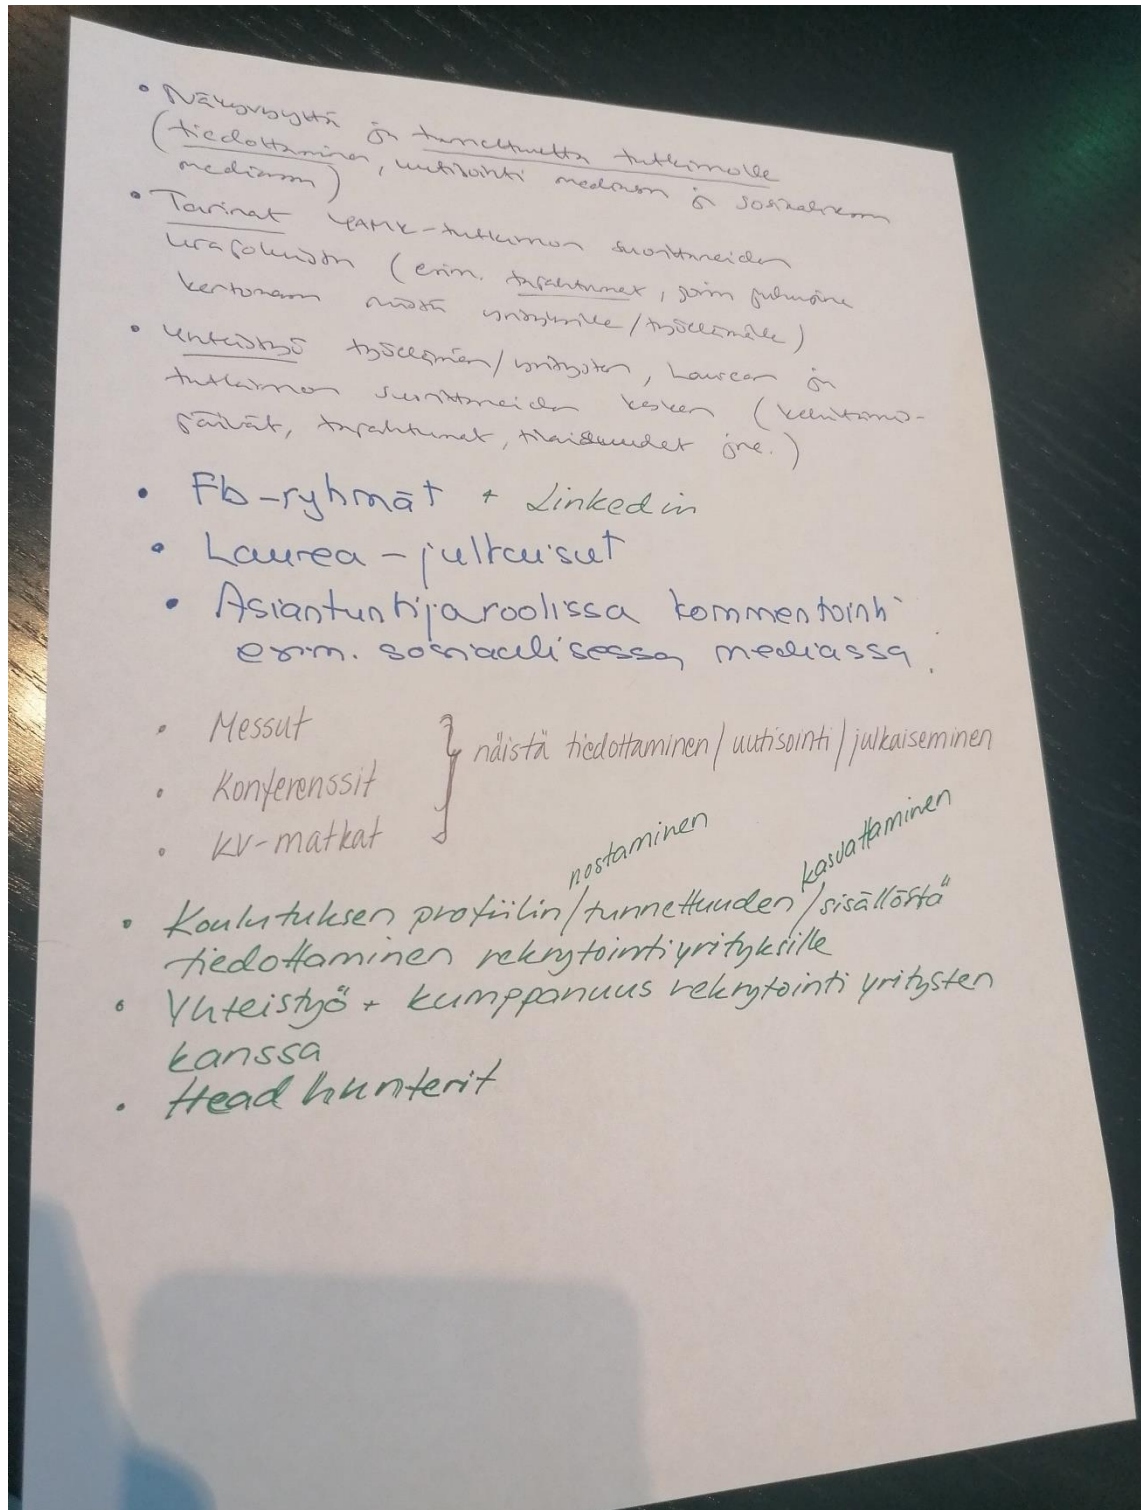 • Näkyvyyttä ja tunnettuutta tutkinnolle
(tiedottaminen, uutisointi mediaan ja sosiaaliseen
mediaan)
• Tarinat YAMK-tutkinnon suorittaneiden
urapoluista (erim. tapahtumat, joim
kertomaan näistä yrityksille/työelämälle)
• Yhteistyö työelämän/yritysten, Laurean ja
tutkinnon suorittaneiden kesken (kehittämis-
päivät, tapahtumat, tilaisuudet jne.)
• Fb-ryhmät + Linkedin
• Laurea-julkaisut
• Asiantuntijaroolissa kommentointi
erim. sosiaalisessa mediassa.
• Messut
• Konferenssit } näistä tiedottaminen/uutisointi/julkaiseminen
• KV-matkat
nostaminen kasvattaminen
• Koulutuksen profiilin/tunnettuuden/sisällöstä
tiedottaminen rekrytointiyrityksille
• Yhteistyö + kumppanuus rekrytointiyritysten
kanssa
• Head hunterit